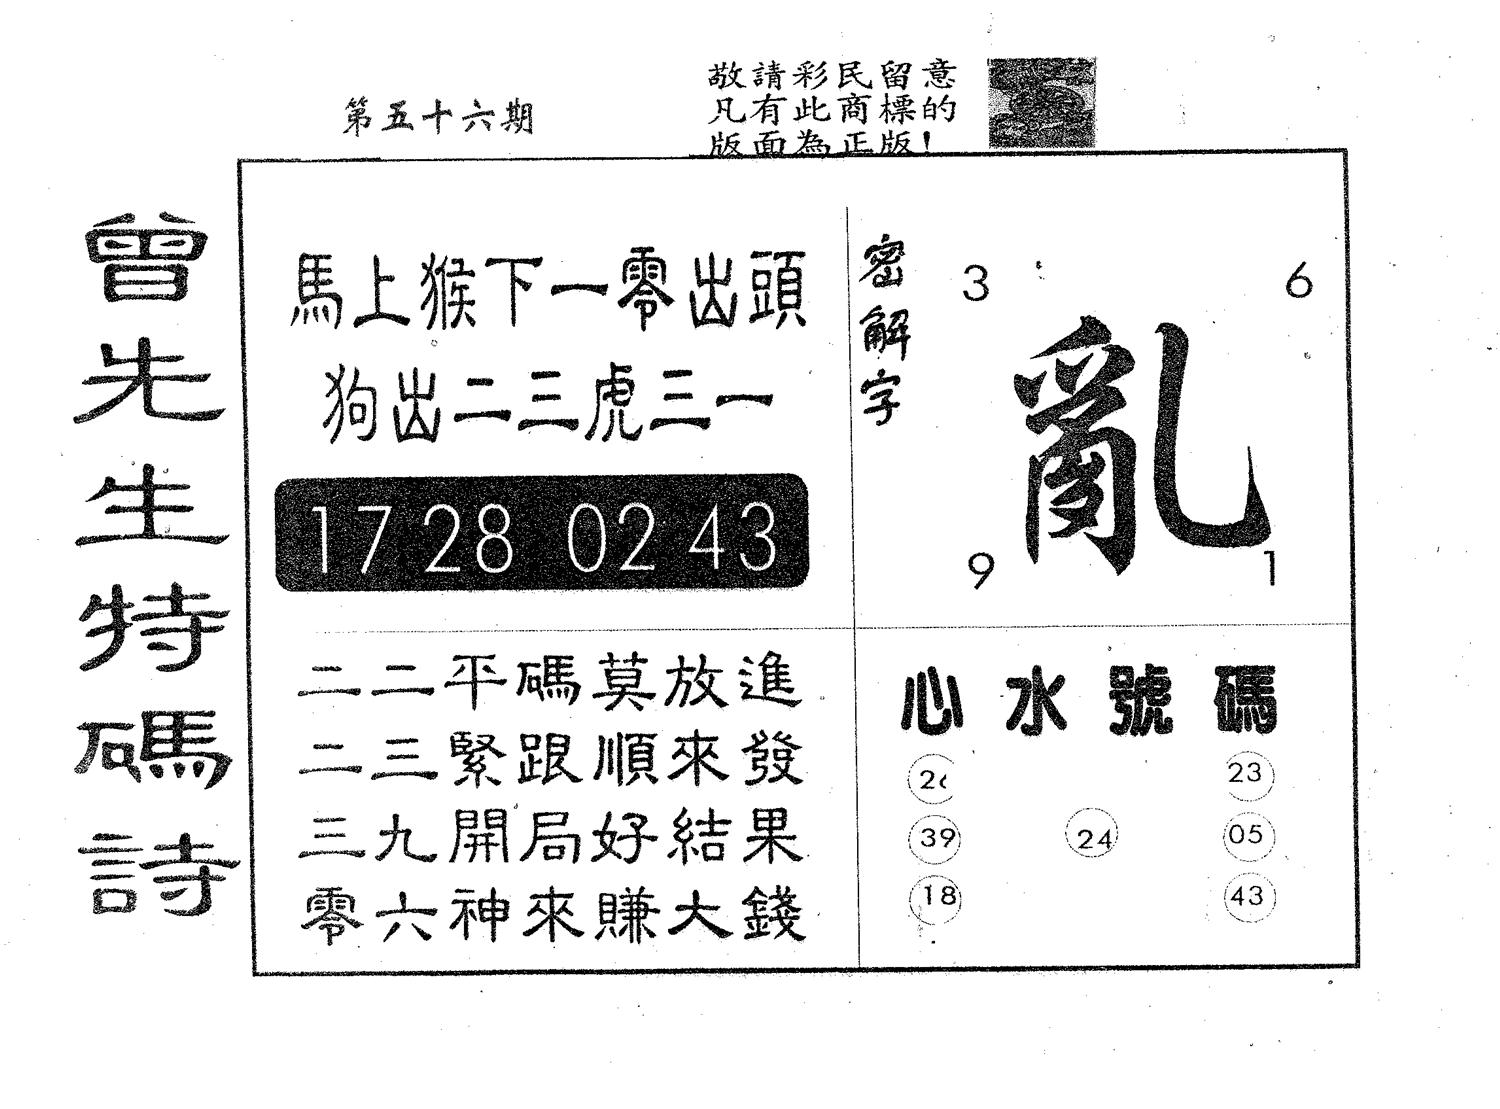 第五十六期
敬請彩民留意
凡有此商標的
版面為正版!
曾先生特碼詩
馬上猴下一零出頭
狗出二三虎三一
17 28 02 43
密解字
3 6
亂
9 1
二二平碼莫放進
二三緊跟順來發
三九開局好結果
零六神來賺大錢
心水號碼
26 23
39 24 05
18 43